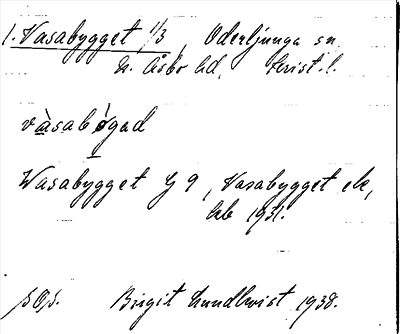 1. Vasabygget 1/3, Oderljunga sn
N. Åsbo hd, Krist. l.
vàsabýgad
Wasabygget G 9, Vasabygget ek,
hb 1931.
Birgit Lundkvist 1938.